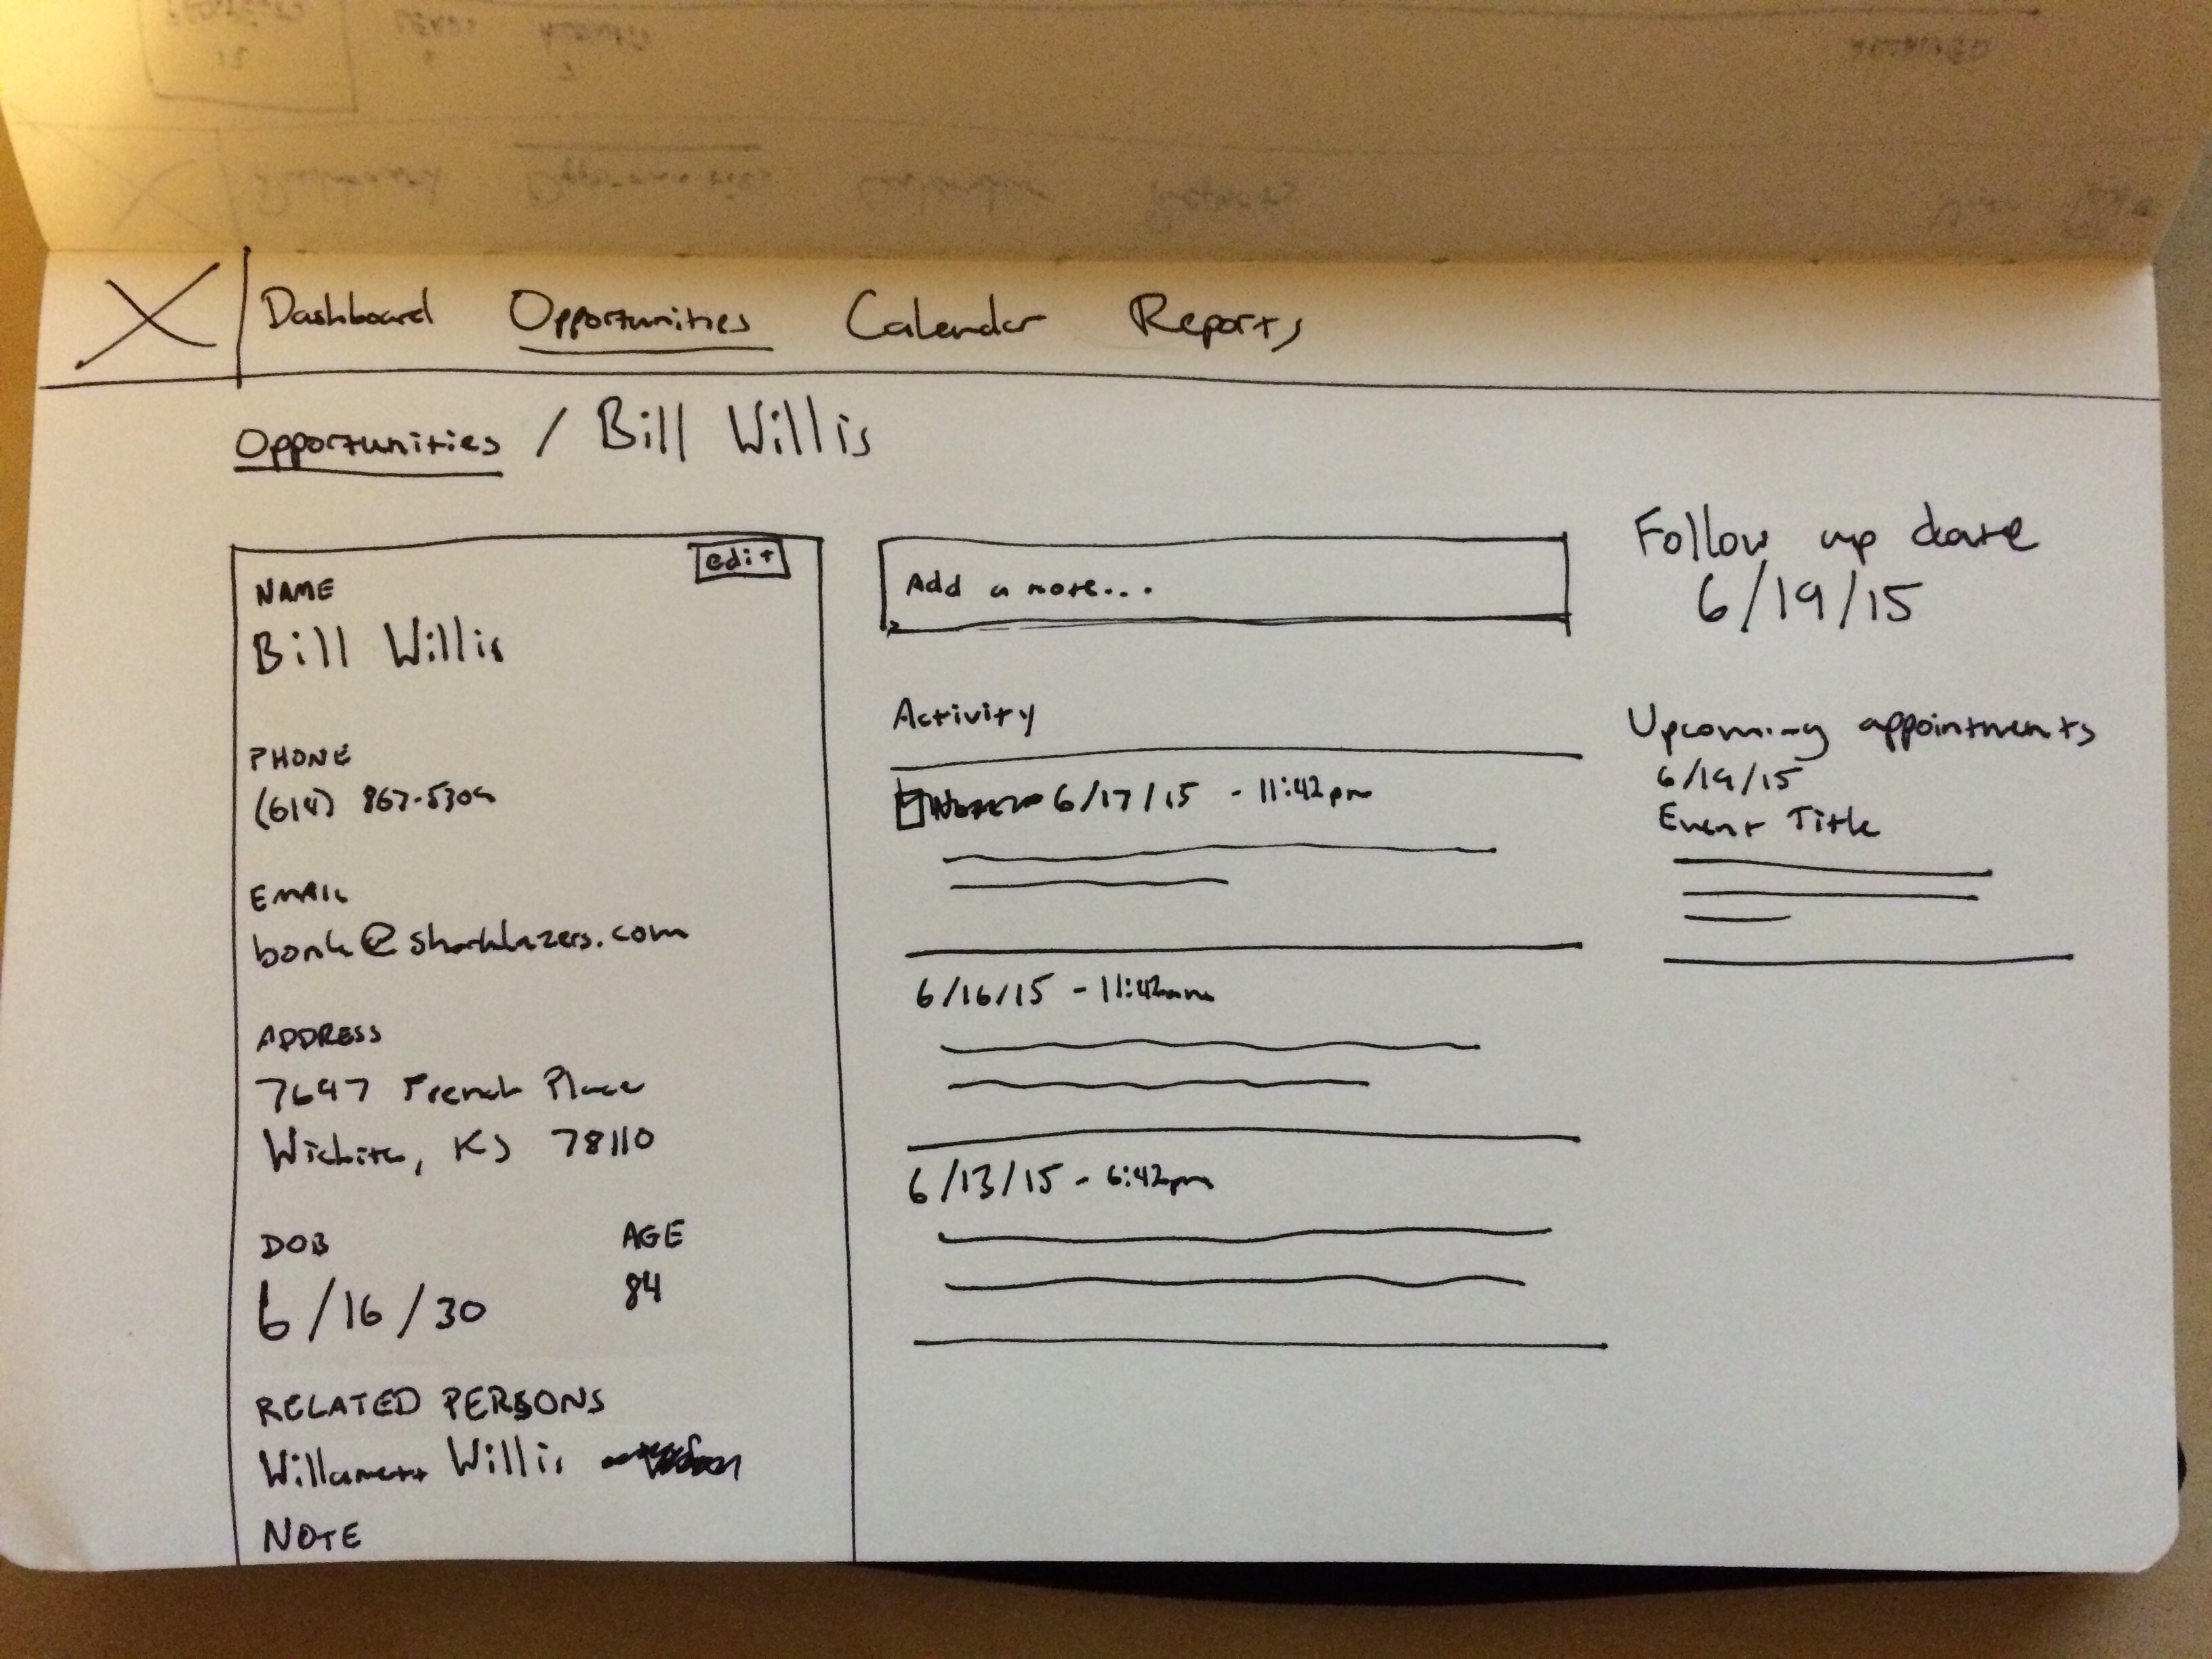 Dashboard Opportunities Calendar Reports
Opportunities / Bill Willis
edit
NAME
Bill Willis
PHONE
(614) 867-5309
EMAIL
bonk@sharklazers.com
ADDRESS
7647 French Place
Wichita, KS 78110
DOB AGE
6/16/30 84
RELATED PERSONS
Willamett Willis
NOTE
Add a note...
Activity
6/17/15 - 11:42pm
6/16/15 - 11:42am
6/13/15 - 6:42pm
Follow up date
6/19/15
Upcoming appointments
6/19/15
Event Title